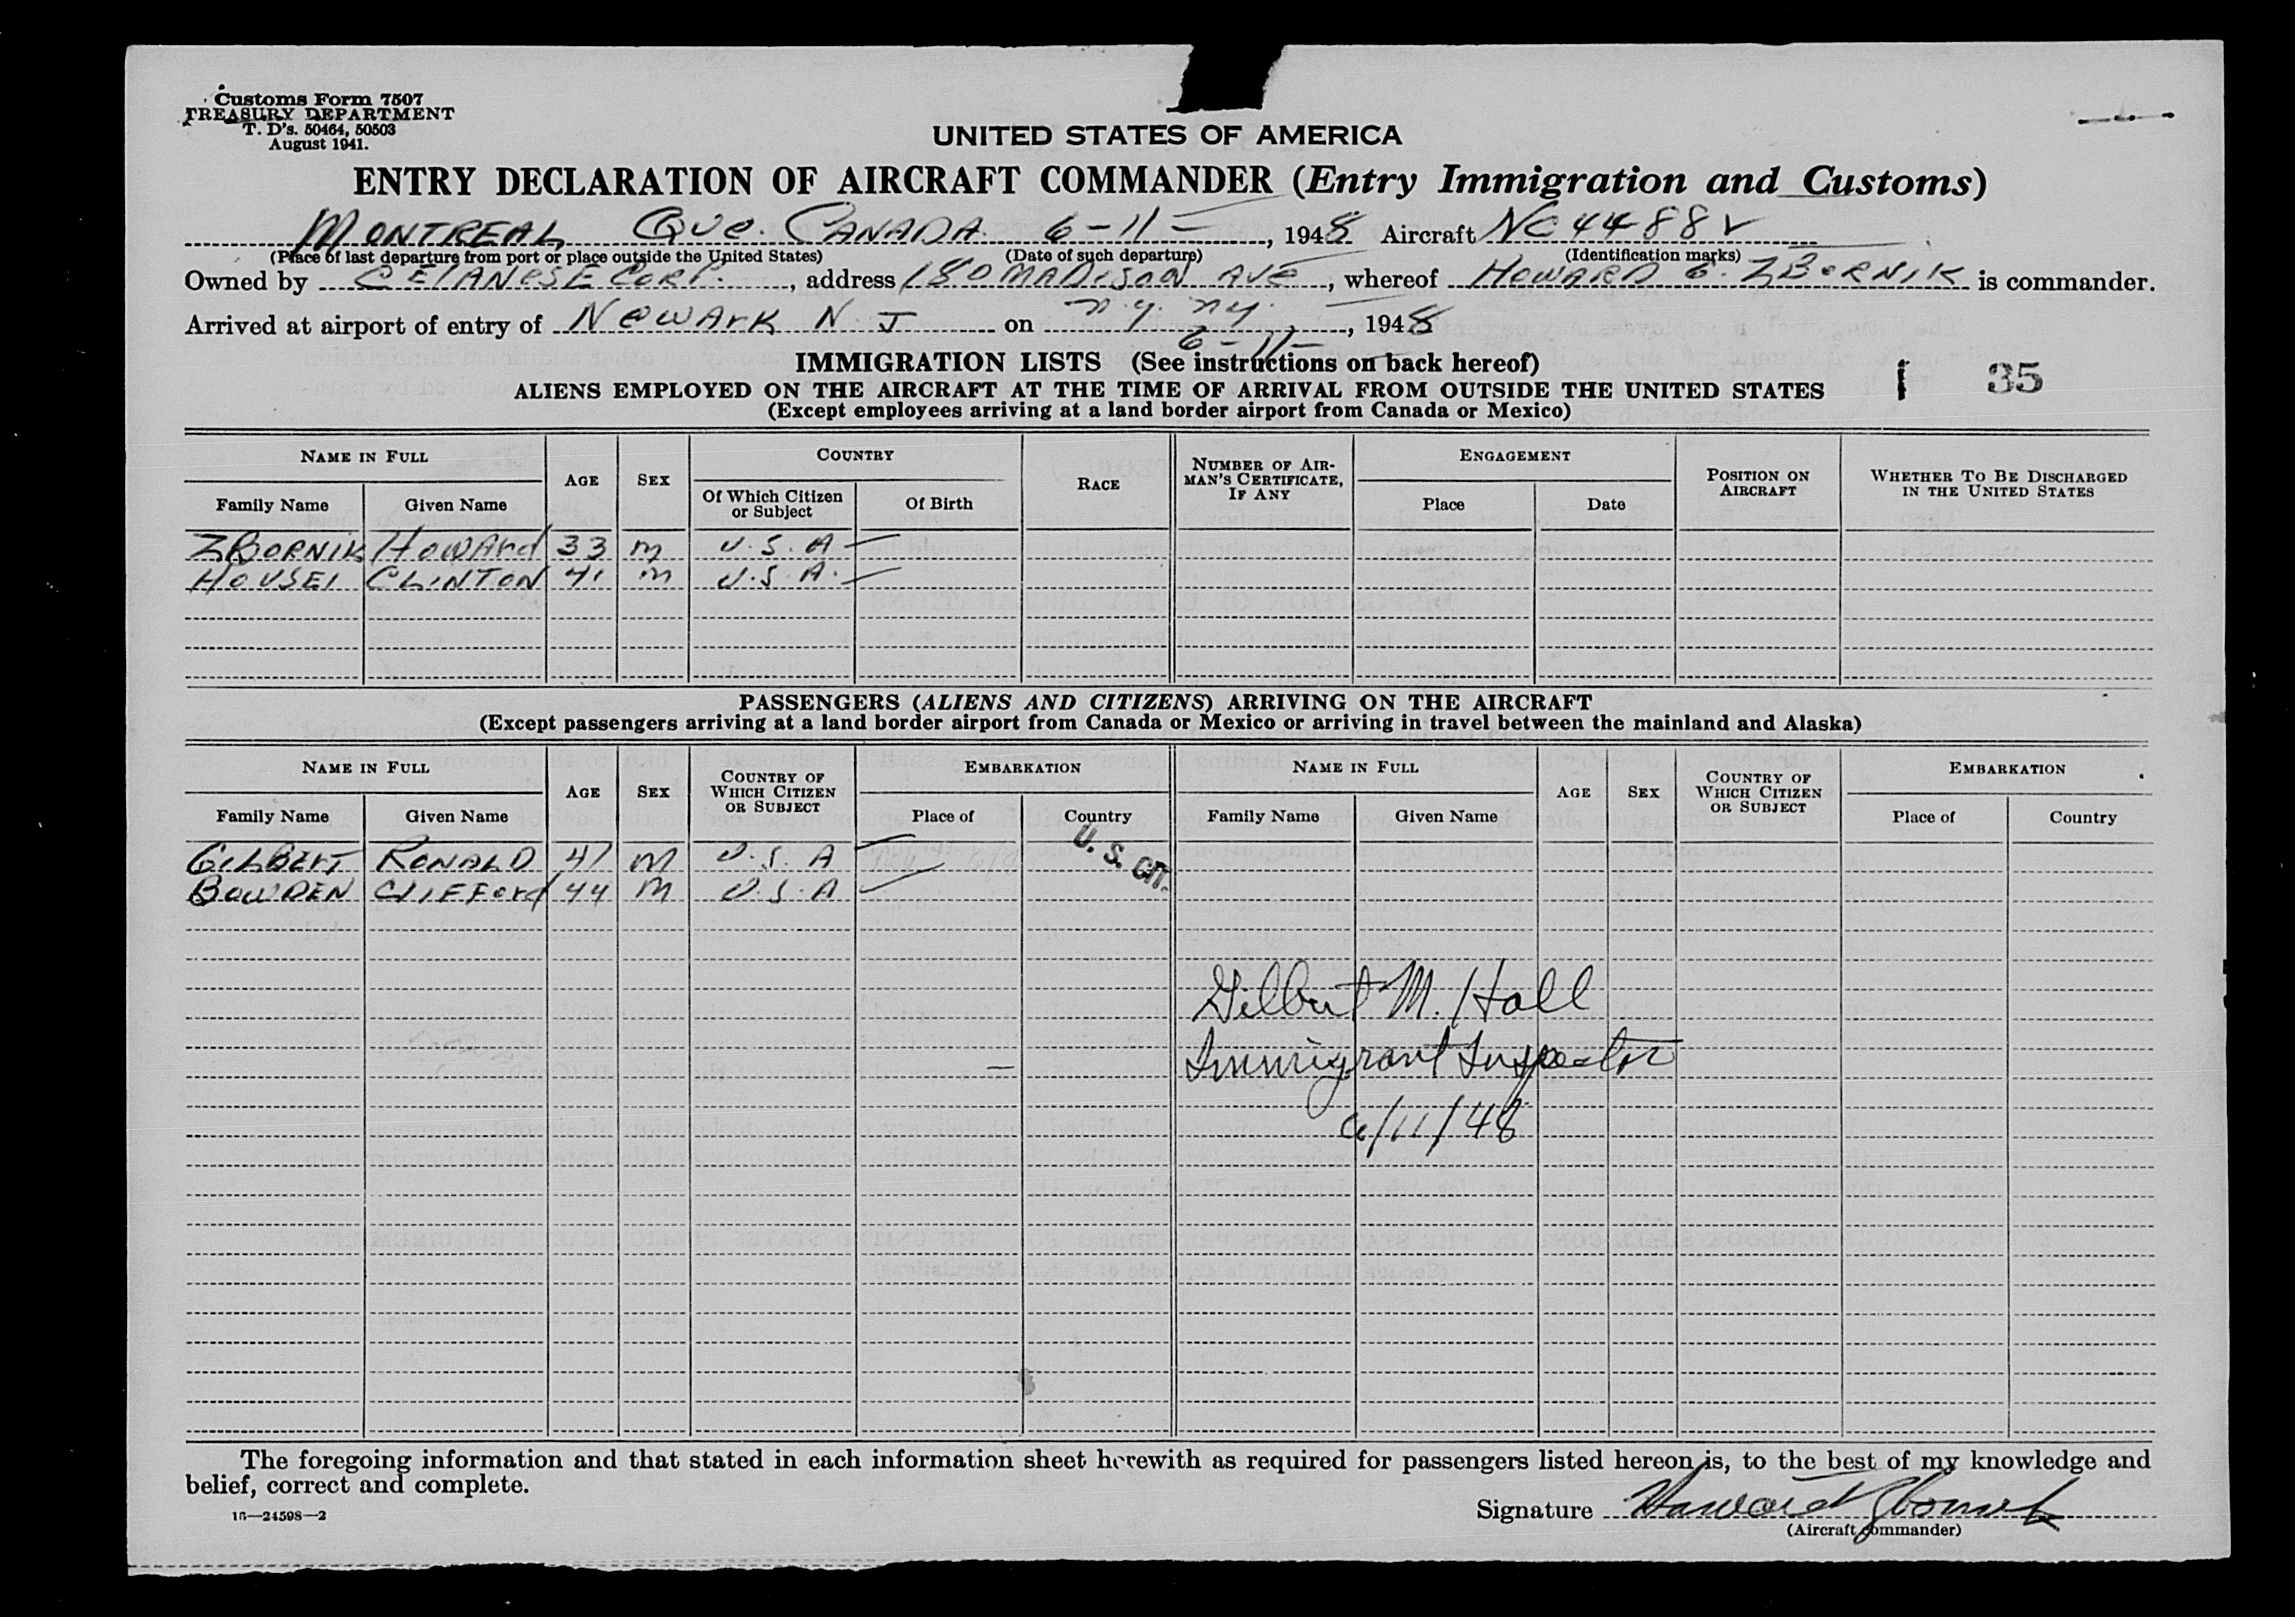 Customs Form 7507
TREASURY DEPARTMENT
T. D's. 50464, 50503
August 1941.
UNITED STATES OF AMERICA
ENTRY DECLARATION OF AIRCRAFT COMMANDER (Entry Immigration and Customs)
MONTREAL Que. CANADA 6-11-, 1948 Aircraft NC 4488V
(Place of last departure from port or place outside the United States) (Date of such departure) (Identification marks)
Owned by CElANESE Corp., address 180 MADISON AVE, whereof HOWARD E. ZBORNIK is commander.
Arrived at airport of entry of NewArK N. J on N.Y. N.Y., 1948
6-11-
IMMIGRATION LISTS (See instructions on back hereof)
ALIENS EMPLOYED ON THE AIRCRAFT AT THE TIME OF ARRIVAL FROM OUTSIDE THE UNITED STATES 35
(Except employees arriving at a land border airport from Canada or Mexico)
NAME IN FULL AGE SEX COUNTRY RACE NUMBER OF AIRMAN'S CERTIFICATE, IF ANY ENGAGEMENT POSITION ON AIRCRAFT WHETHER TO BE DISCHARGED IN THE UNITED STATES
Family Name Given Name Of Which Citizen or Subject Of Birth Place Date
ZBORNIK HOWArd 33 m U.S.A
HOUSEl CLINTON 41 m U.S.A.
PASSENGERS (ALIENS AND CITIZENS) ARRIVING ON THE AIRCRAFT
(Except passengers arriving at a land border airport from Canada or Mexico or arriving in travel between the mainland and Alaska)
NAME IN FULL AGE SEX COUNTRY OF WHICH CITIZEN OR SUBJECT EMBARKATION NAME IN FULL AGE SEX COUNTRY OF WHICH CITIZEN OR SUBJECT EMBARKATION
Family Name Given Name Place of Country Family Name Given Name Place of Country
GILBErT RONALD 47 M U.S.A U. S. CIT.
BOWDEN CliFFord 44 M U.S.A
Gilbert M. Hall
Immigrant Inspector
6/11/48
The foregoing information and that stated in each information sheet herewith as required for passengers listed hereon is, to the best of my knowledge and
belief, correct and complete.
16—24598—2
Signature Howard Zbornik
(Aircraft commander)